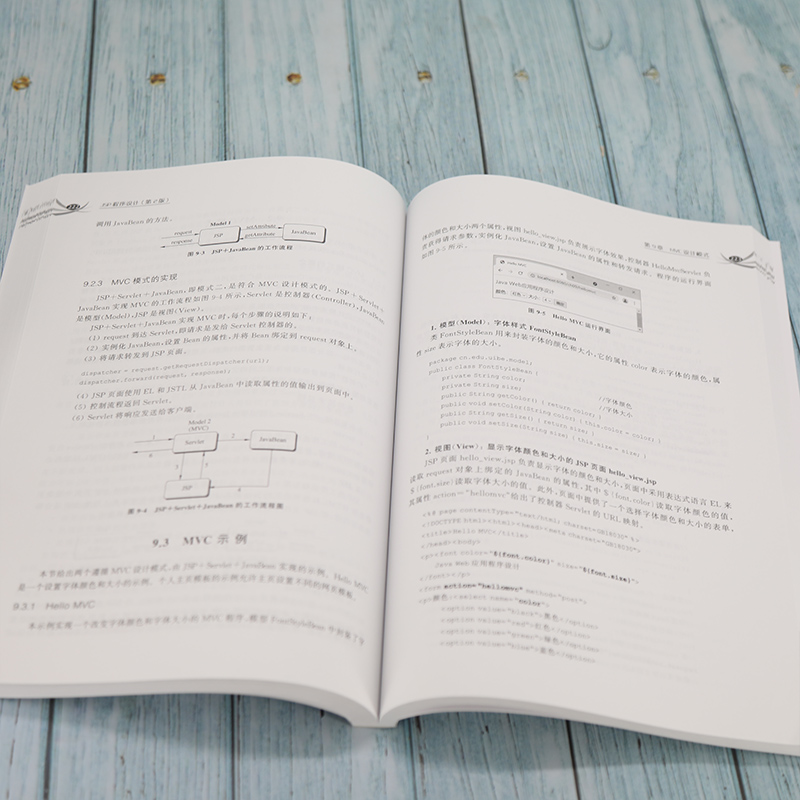 JSP程序设计(第2版)
调用JavaBean的方法。
Model 1
request
response
JSP
setAttribute
getAttribute
JavaBean
图 9-3 JSP+JavaBean的工作流程
9.2.3 MVC模式的实现
JSP+Servlet+JavaBean,即模式二,是符合MVC设计模式的。JSP+Servlet+
JavaBean实现MVC的工作流程如图9-4所示,Servlet是控制器(Controller),JavaBean
是模型(Model),JSP是视图(View)。
JSP+Servlet+JavaBean实现MVC时,每个步骤的说明如下:
(1) request到达Servlet,即请求是发给Servlet控制器的。
(2) 实例化JavaBean,设置Bean的属性,并将Bean绑定到request对象上。
(3) 将请求转发到JSP页面。
dispatcher = request.getRequestDispatcher(url);
dispatcher.forward(request, response);
(4) JSP页面使用EL和JSTL从JavaBean中读取属性的值输出到页面中。
(5) 控制流程返回Servlet。
(6) Servlet将响应发送给客户端。
Model 2
(MVC)
1
Servlet
2
JavaBean
6
3
5
4
JSP
图 9-4 JSP+Servlet+JavaBean的工作流程图
9.3 MVC示例
本节给出两个遵循MVC设计模式,由JSP+Servlet+JavaBean实现的示例。Hello MVC
是一个设置字体颜色和大小的示例。个人主页模板的示例允许主页设置不同的网页模板。
9.3.1 Hello MVC
本示例实现一个改变字体颜色和字体大小的MVC程序,模型FontStyleBean中封装了字
第9章 MVC设计模式
体的颜色和大小两个属性,视图hello_view.jsp负责展示字体效果,控制器HelloMvcServlet负
责获得请求参数,实例化JavaBean,设置JavaBean的属性和转发请求。程序的运行界面
如图9-5所示。
Hello MVC
Java Web应用程序设计
图 9-5 Hello MVC运行界面
1. 模型(Model):字体样式FontStyleBean
类FontStyleBean用来封装字体的颜色和大小,它的属性color表示字体的颜色,属
性size表示字体的大小。
package cn.edu.uibe.model;
public class FontStyleBean {
private String color; //字体颜色
private String size; //字体大小
public String getColor() { return color; }
public void setColor(String color) { this.color = color; }
public String getSize() { return size; }
public void setSize(String size) { this.size = size; }
}
2. 视图(View):显示字体颜色和大小的JSP页面hello_view.jsp
JSP页面hello_view.jsp负责显示字体的颜色和大小,页面中采用表达式语言EL来
读取request对象上绑定的JavaBean的属性,其中${font.color}读取字体颜色的值,
${font.size}读取字体大小的值。此外,页面中提供了一个选择字体颜色和大小的表单,
其属性action="hellomvc"给出了控制器Servlet的URL映射。
<%@ page contentType="text/html; charset=GB18030" %>
<!DOCTYPE html><html><head><meta charset="GB18030">
<title>Hello MVC</title>
</head><body>
<p><font color="${font.color}" size="${font.size}">
Java Web应用程序设计
</font></p>
<form action="hellomvc" method="post">
<p>颜色:<select name="color">
<option value="black">黑色</option>
<option value="red">红色</option>
<option value="green">绿色</option>
<option value="blue">蓝色</option>